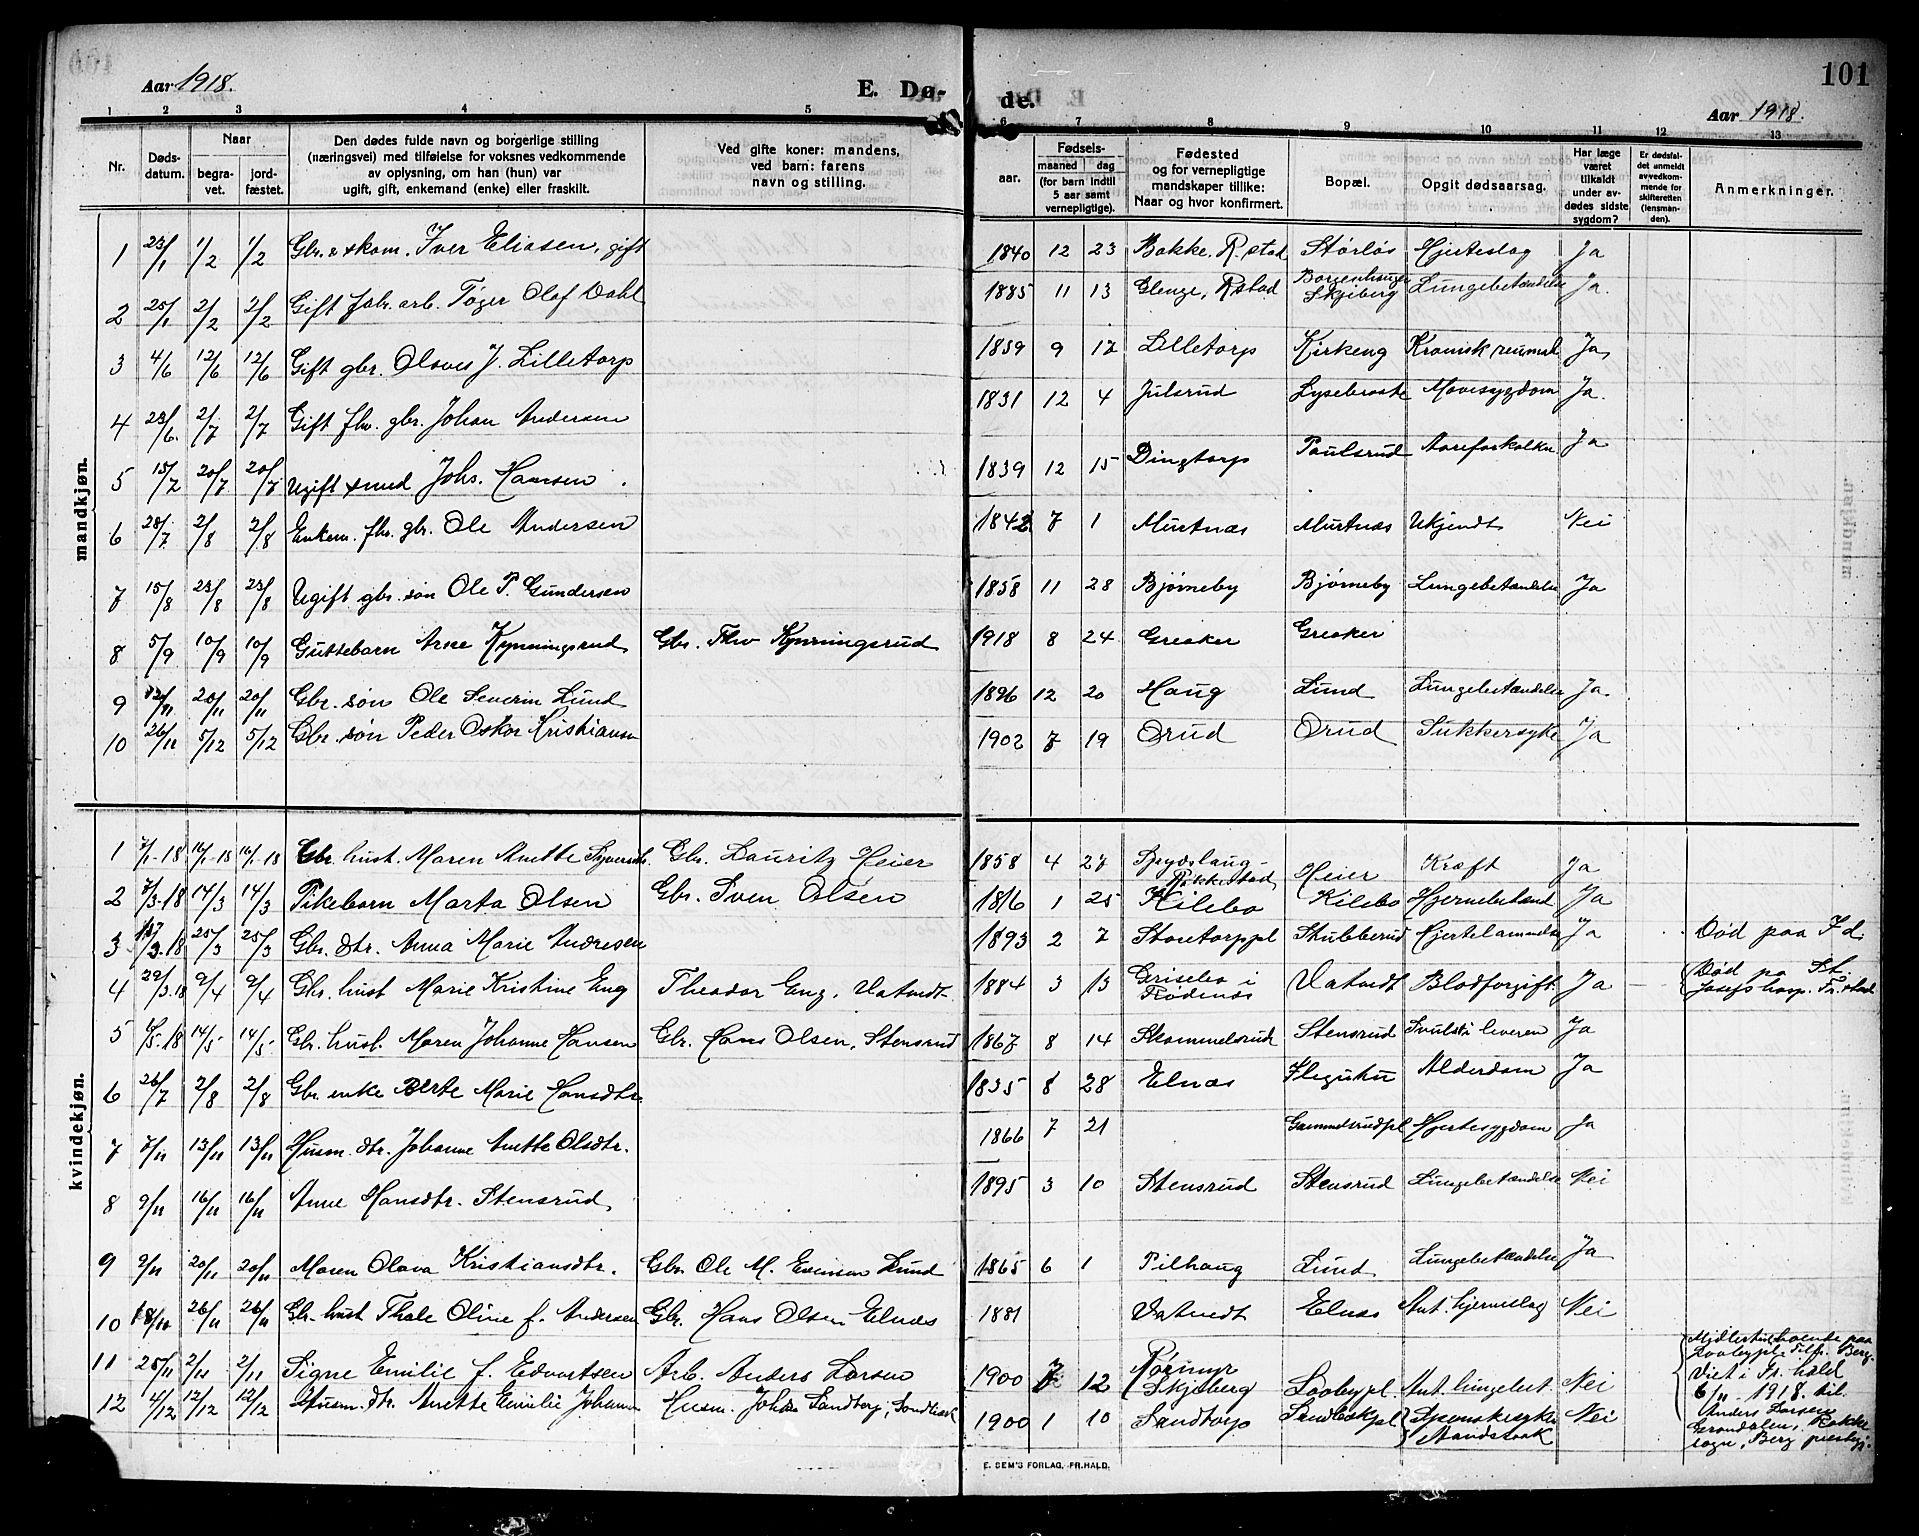 Aar 1918.
E. Dø- de.
101
Aar 1918.
1 2 3 4 5 6 7 8 9 10 11 12 13
Nr.
Døds-
datum.
Naar
begra-
vet.
jord-
fæstet.
Den dødes fulde navn og borgerlige stilling
(næringsvei) med tilføielse for voksnes vedkommende
av oplysning, om han (hun) var
ugift, gift, enkemand (enke) eller fraskilt.
Ved gifte koner: mandens,
ved barn: farens
navn og stilling.
Fødsels-
aar.
maaned dag
(for barn indtil
5 aar samt
vernepligtige).
Fødested
og for vernepligtige
mandskaper tillike:
Naar og hvor konfirmert.
Bopæl.
Opgit dødsaarsag.
Har læge
været
tilkaldt
under av-
dødes sidste
sygdom?
Er dødsfal-
det anmeldt
av vedkom-
mende for
skifteretten
(lensman-
den).
Anmerkninger.
mandkjøn.
1 23/1 1/2 1/2 Gbr. & skom. Iver Eliasen, gift 1840 12 23 Bakke, R.stad Størløs Hjerteslag Ja
2 25/1 2/2 2/2 Gift Fabr. arb. Tøger Olaf Dahl 1885 11 13 Glenge, Rstad Borgenhaugen Skjeberg Lungebetændelse Ja.
3 4/6 12/6 12/6 Gift gbr. Olaves J. Lilletorp 1859 9 17 Lilletorp Kirkeng Kronisk reumat Ja
4 23/6. 2/7 2/7 Gift fhv. gbr. Johan Andersen 1831 12 4 Julsrud Lysebraate Mavesygdom Ja.
5 15/7 20/7 20/7 Ugift smed Johs. Hansen. 1839 12 15 Dingtorp Paulsrud Aareforkalkn Ja
6 28/7 2/8 2/8 Enkem. fhv. gbr. Ole Andersen 1842 7 1 Murtnæs Murtnæs Ukjendt Nei
7 15/8 23/8 23/8 Ugift gbr. søn Ole P. Gundersen 1858 11 28 Bjørneby Bjørneby Lungebetændelse Ja
8 5/9 10/9 10/9 Guttebarn Arne Kynningsrud Gbr. Thv Kynningsrud 1918 8 24 Greaker Greaker
9 12/11 20/11 20/11 Gbr. søn Ole Severin Lund 1896 12 20 Haug Lund Lungebetændelse Ja.
10 26/11 5/12 5/12 Gbr. søn Peder Oskar Kristiansen 1902 7 19 Orud Orud Sukkersyke Ja
kvindekjøn.
1 7/1-18 16/1-18 16/1-18 Gbr. hust. Maren Anette Syversdtr. Gbr. Lauritz Heier 1858 4 27 Rakkestad Heier Kræft Ja
2 7/3-18 14/3 14/3 Pikebarn Marta Olsen Gbr. Sven Olsen 1816 1 25 Kilebo Kilebo Hjernebetænd Ja
3 17/3-18 25/3 25/3 Gbr. dtr. Anna Marie Andresen 1893 2 7 Stortorppl Stubberud Hjertelammelse Ja Død paa Id.
4 29/3-18 9/4 9/4 Gbr. hust Marie Kristine Eng Theodor Eng, Vatvedt 1884 3 13 Grisebo i Rødenæs Vatvedt Blodforgift Ja Død pa St. Josefs hosp. Fr.stad
5 14/5 14/5 Gbr. hust. Maren Johanne Hansen Gbr. Hans Olsen, Stensrud 1867 8 14 Skammelsrud Stensrud Svulst i leveren Ja
6 26/7 2/8 2/8 Gbr. enke Berte Marie Hansdtr. 1835 8 28 Elnæs Alderdom Ja
7 7/11 13/11 13/11 Husm. dtr. Johanne Anette Olsdtr. 1866 7 21 Gammelsrudpl Hjertesygdom Ja
8 9/11 16/11 16/11 Anne Hansdtr. Stensrud 1895 3 10 Stensrud Stensrud Lungebetændelse Nei
9 9/11 20/11 20/11 Maren Olava Kristiansdtr. Gbr. Ole M. Lund 1865 6 1 Pilhaug Lund Lungebetændelse Ja
10 18/11 26/11 26/11 Gbr. hust Thale Oline f. Andersen Gbr. Hans Olsen Elnæs 1881 Vatvedt Elnæs Ant. hjerneslag Nei
11 25/11 2/11 2/11 Signe Emilie f. Edvartsen Arb. Anders Larsen 1900 7 12 Skjeberg Laabypl. Ant. lungebet. Nei
12 4/12 12/12 12/12 Husm. dtr. Anette Emilie Johann Husm. Johan Sandtorp, Sandbæk 1900 1 10 Sandtorp Sandbækpl Spanskesyke Nei
Midlertid boende paa
Laabypl. tilh. Berg.
Viet i Fr. hald
6/11-1918. til
Anders Larsen
Grøndalen, Rokke
sogn, Berg prestegj.
E. SEM'S FORLAG, FR.HALD.